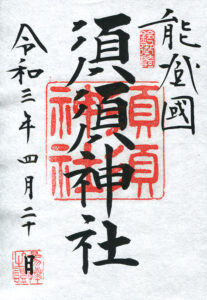 能登國
須須神社
須須
神社
令和三年四月二十日